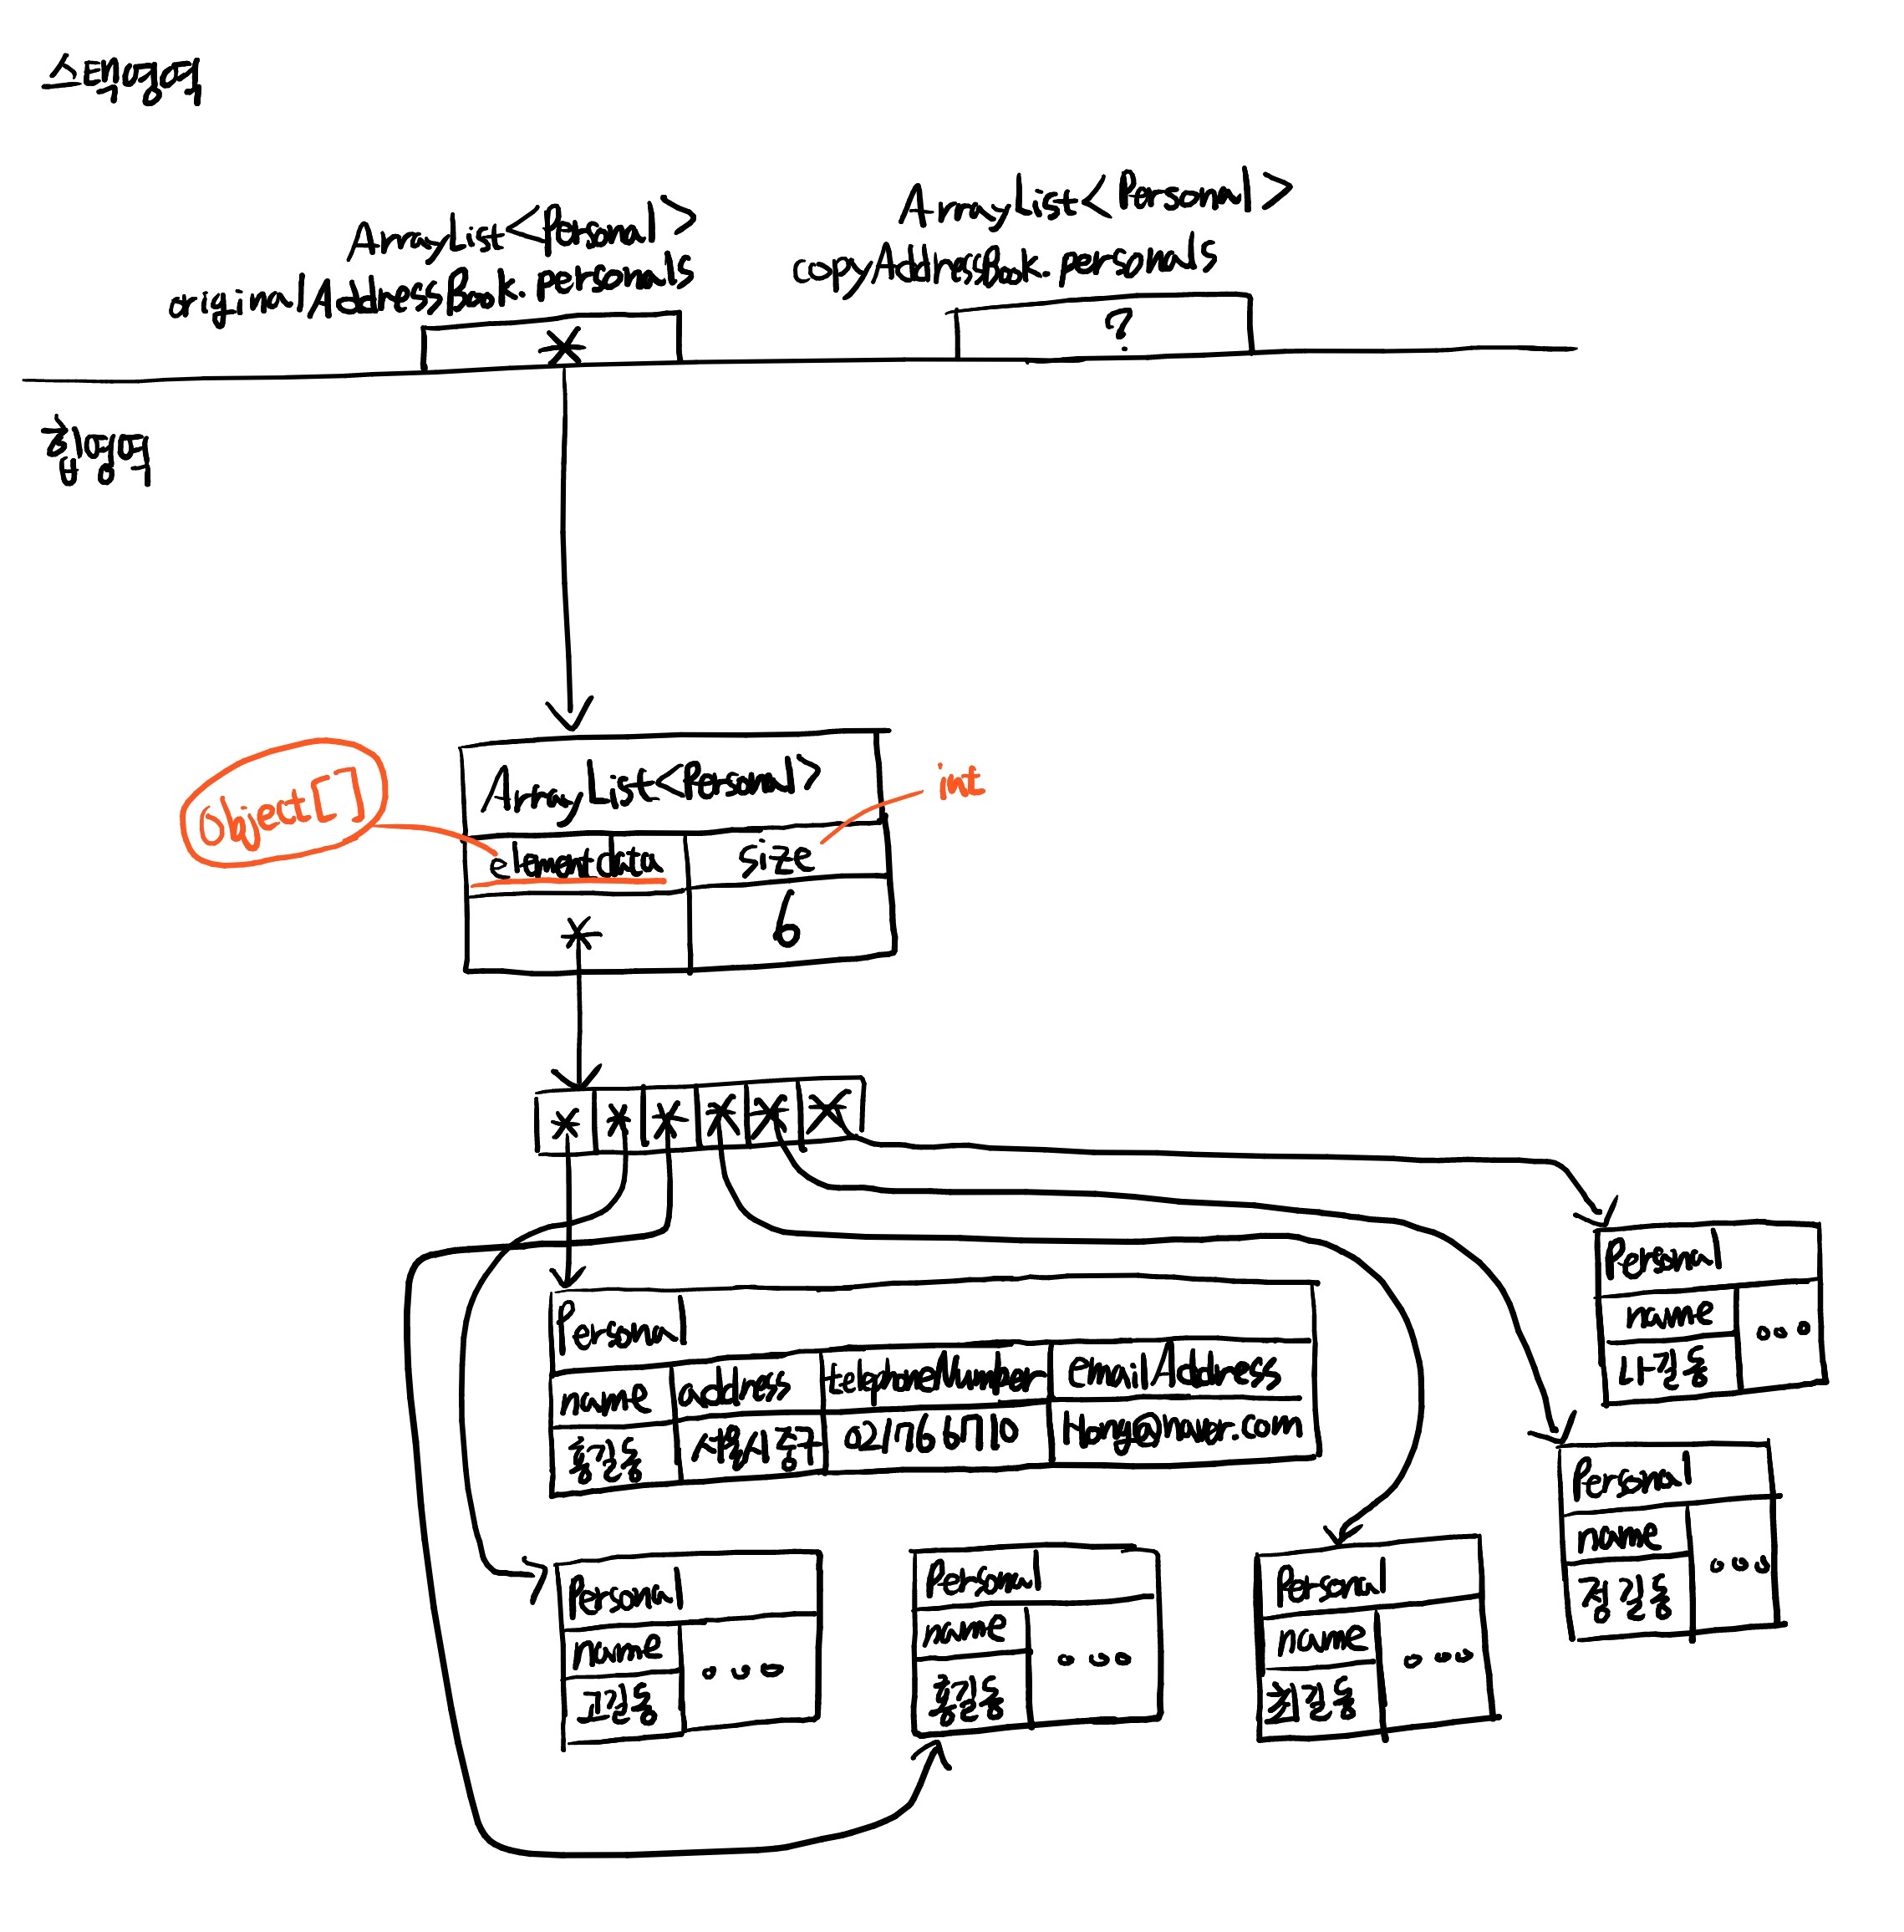 스택영역
ArrayList<Personal>
originalAddressBook.personals
*
ArrayList<Personal>
copyAddressBook.personals
?
힙영역
Object[]
int
ArrayList<Personal>
elementdata
size
*
6
* * * * * *
Personal
name address telephoneNumber emailAddress
홍길동 서울시중구 021766710 Hong@naver.com
Personal
name
나길동
Personal
name
정길동
Personal
name
고길동
Personal
name
홍길동
Personal
name
최길동